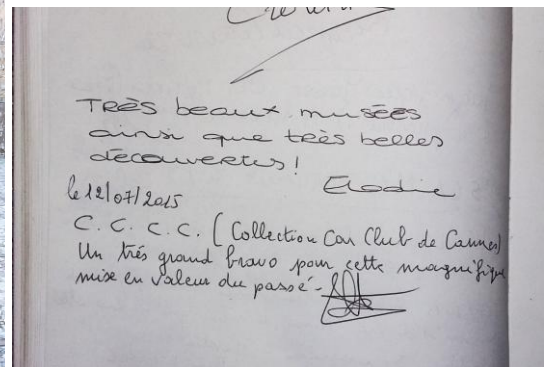 TRÈS beaux musées
ainsi que très belles
découvertes !
Elodie
le 12/07/2015
C. C. C. C. (Collection Car Club de Cannes)
Un très grand bravo pour cette magnifique
mise en valeur du passé -